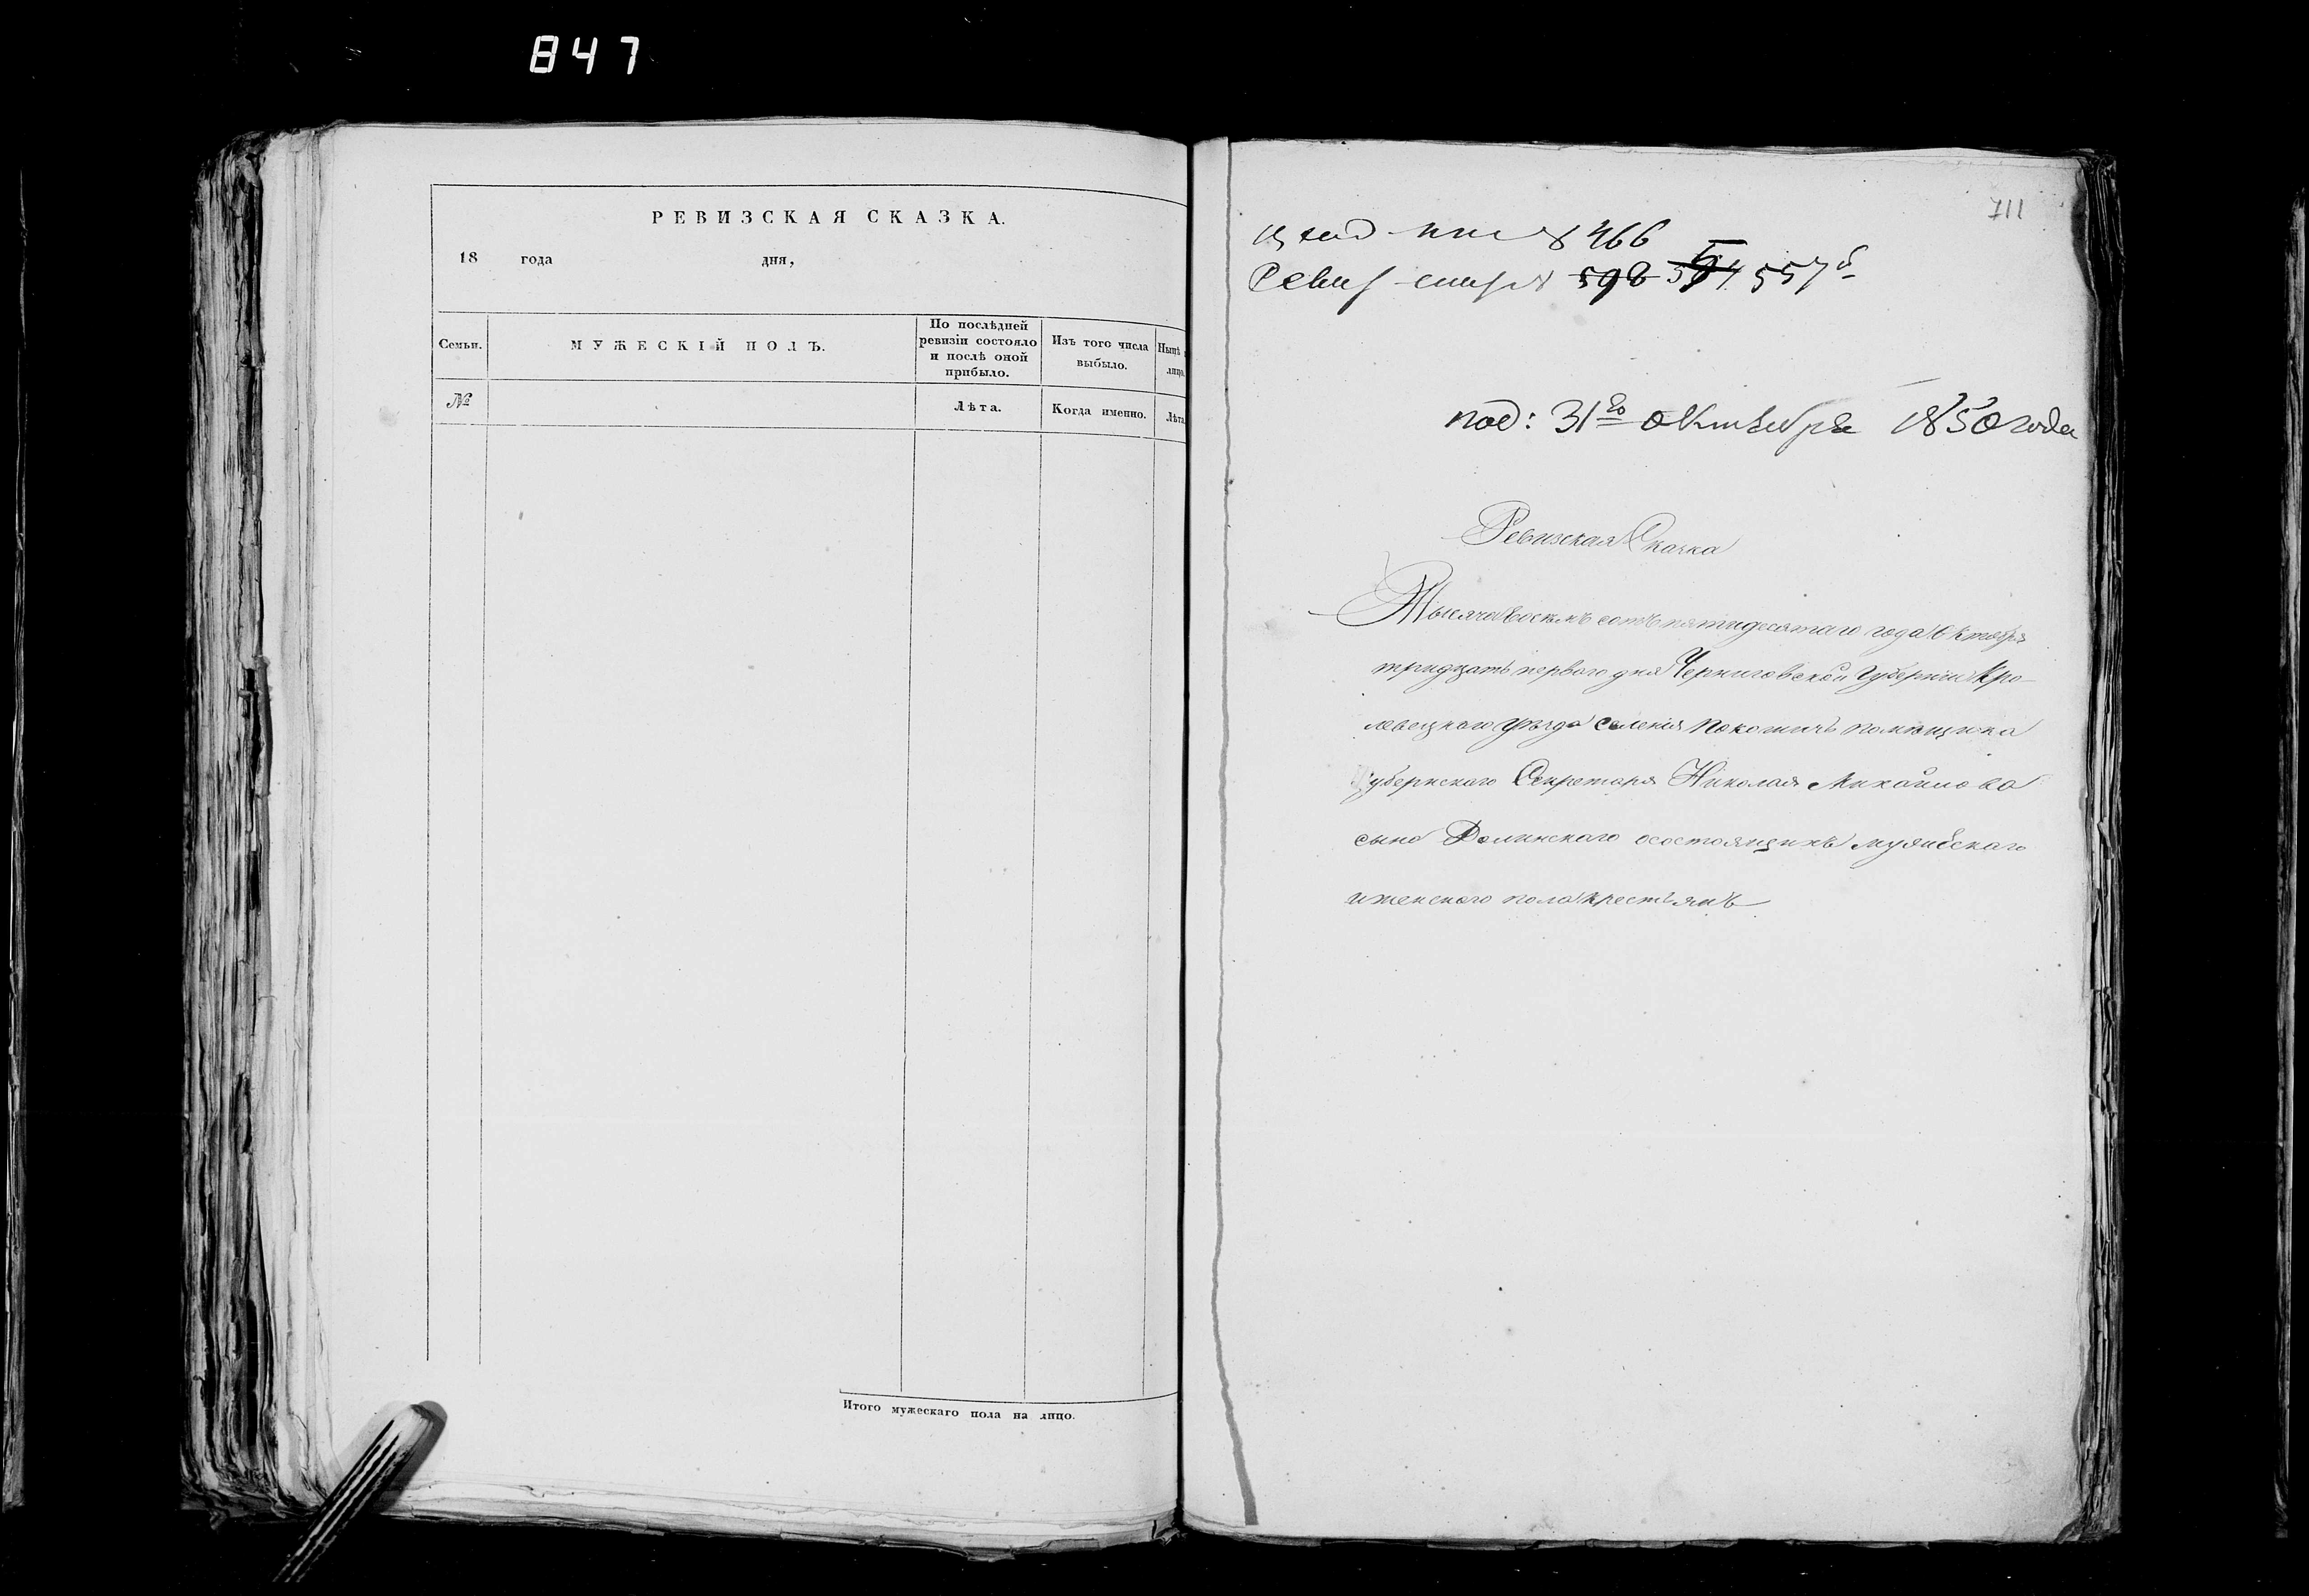 847
РЕВИЗСКАЯ СКАЗКА.
18 года дня,
Семьи.
МУЖЕСКІЙ ПОЛЪ.
По послѣдней
ревизіи состояло
и послѣ оной
прибыло.
Изъ того числа
выбыло.
Нынѣ
лицо.
№
Лѣта.
Когда именно.
Лѣта.
Итого мужескаго пола на лицо.
711
466
Ревиз 598 557
под: 31го октября 1850 года
Ревизская Сказка
Тысяча восемь сотъ пятидесятаго года Октября
тридцать перваго дня Черниговской Губерніи Кро-
левецкаго уѣзда селенія Покошичь помѣщика
Губернскаго Секретаря Николая Михайлова
сына Долинского о состоящихъ мужескаго
и женского пола крестьянъ